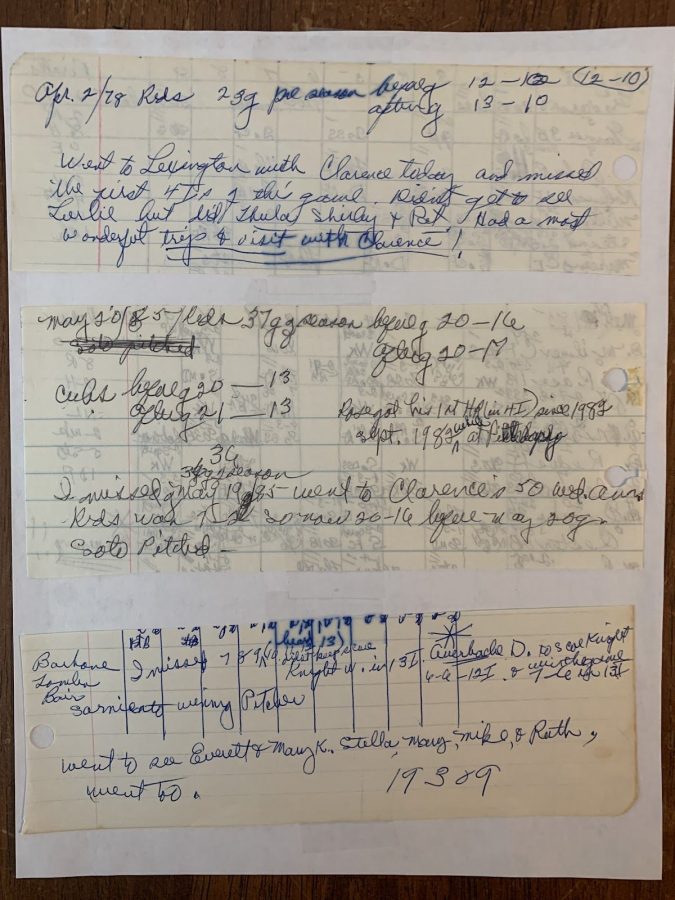 Apr. 2/78 Reds 23g pre season before g 12-10 (12-10)
after g 13-10
Went to Lexington with Clarence today and missed
the first 4 I's of the game. Didn't get to see
Leslie but did Thula, Shirley & Pat. Had a most
wonderful trip & visit with Clarence!
May 20/85/Reds 37g season before g 20-16
Soto pitched
after g 20-17
Cubs before g 20-13
after g 21-13
Rose got his 1st HR (in HI) since 1982
Sept. 1982 while at
36
g season
I missed g May 19, 85 went to Clarence's 50 wed. ann
Reds won so now 20-16 before May 20g.
Soto Pitched -
(heard 13)
I missed 7 8 9 10 didn't keep score
Knight in 13 I.
D. to score Knight
6-6-12I. & 7-6 in 13I
Sarmiento winning Pitcher
went to see Everett & Mary K., Stella, Mary, Mike, & Ruth,
went too.